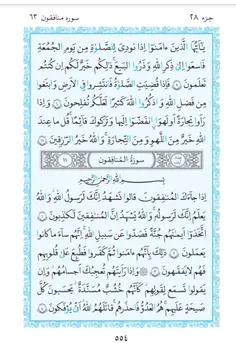 جزء ٢٨ سوره منافقون ٦٣
يَٰٓأَيُّهَا الَّذِينَ ءَامَنُوٓا إِذَا نُودِىَ لِلصَّلَوٰةِ مِن يَوْمِ الْجُمُعَةِ
فَاسْعَوْا إِلَىٰ ذِكْرِ اللَّهِ وَذَرُوا الْبَيْعَ ذَٰلِكُمْ خَيْرٌ لَّكُمْ إِن كُنتُمْ
تَعْلَمُونَ ٩ فَإِذَا قُضِيَتِ الصَّلَوٰةُ فَانتَشِرُوا فِى الْأَرْضِ وَابْتَغُوا
مِن فَضْلِ اللَّهِ وَاذْكُرُوا اللَّهَ كَثِيرًا لَّعَلَّكُمْ تُفْلِحُونَ ١٠ وَإِذَا
رَأَوْا تِجَٰرَةً أَوْ لَهْوًا انفَضُّوٓا إِلَيْهَا وَتَرَكُوكَ قَآئِمًا قُلْ مَا عِندَ
اللَّهِ خَيْرٌ مِّنَ اللَّهْوِ وَمِنَ التِّجَٰرَةِ وَاللَّهُ خَيْرُ الرَّٰزِقِينَ ١١
سُورَةُ الْمُنَافِقُونَ
بِسْمِ اللَّهِ الرَّحْمَٰنِ الرَّحِيمِ
إِذَا جَآءَكَ الْمُنَٰفِقُونَ قَالُوا نَشْهَدُ إِنَّكَ لَرَسُولُ اللَّهِ وَاللَّهُ
يَعْلَمُ إِنَّكَ لَرَسُولُهُ وَاللَّهُ يَشْهَدُ إِنَّ الْمُنَٰفِقِينَ لَكَٰذِبُونَ ١
اتَّخَذُوٓا أَيْمَٰنَهُمْ جُنَّةً فَصَدُّوا عَن سَبِيلِ اللَّهِ إِنَّهُمْ سَآءَ مَا كَانُوا
يَعْمَلُونَ ٢ ذَٰلِكَ بِأَنَّهُمْ ءَامَنُوا ثُمَّ كَفَرُوا فَطُبِعَ عَلَىٰ قُلُوبِهِمْ
فَهُمْ لَا يَفْقَهُونَ ٣ وَإِذَا رَأَيْتَهُمْ تُعْجِبُكَ أَجْسَامُهُمْ وَإِن
يَقُولُوا تَسْمَعْ لِقَوْلِهِمْ كَأَنَّهُمْ خُشُبٌ مُّسَنَّدَةٌ يَحْسَبُونَ كُلَّ
صَيْحَةٍ عَلَيْهِمْ هُمُ الْعَدُوُّ فَاحْذَرْهُمْ قَٰتَلَهُمُ اللَّهُ أَنَّىٰ يُؤْفَكُونَ ٤
٥٥٤